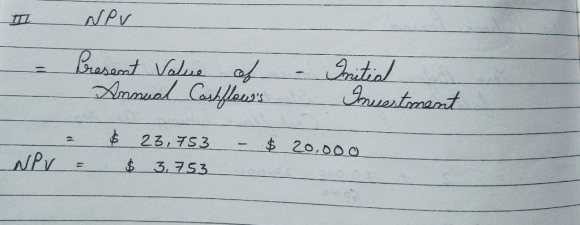 III NPV
= Present Value of - Initial
Annual Cashflow's Investment
= $ 23,753 - $ 20,000
NPV = $ 3,753